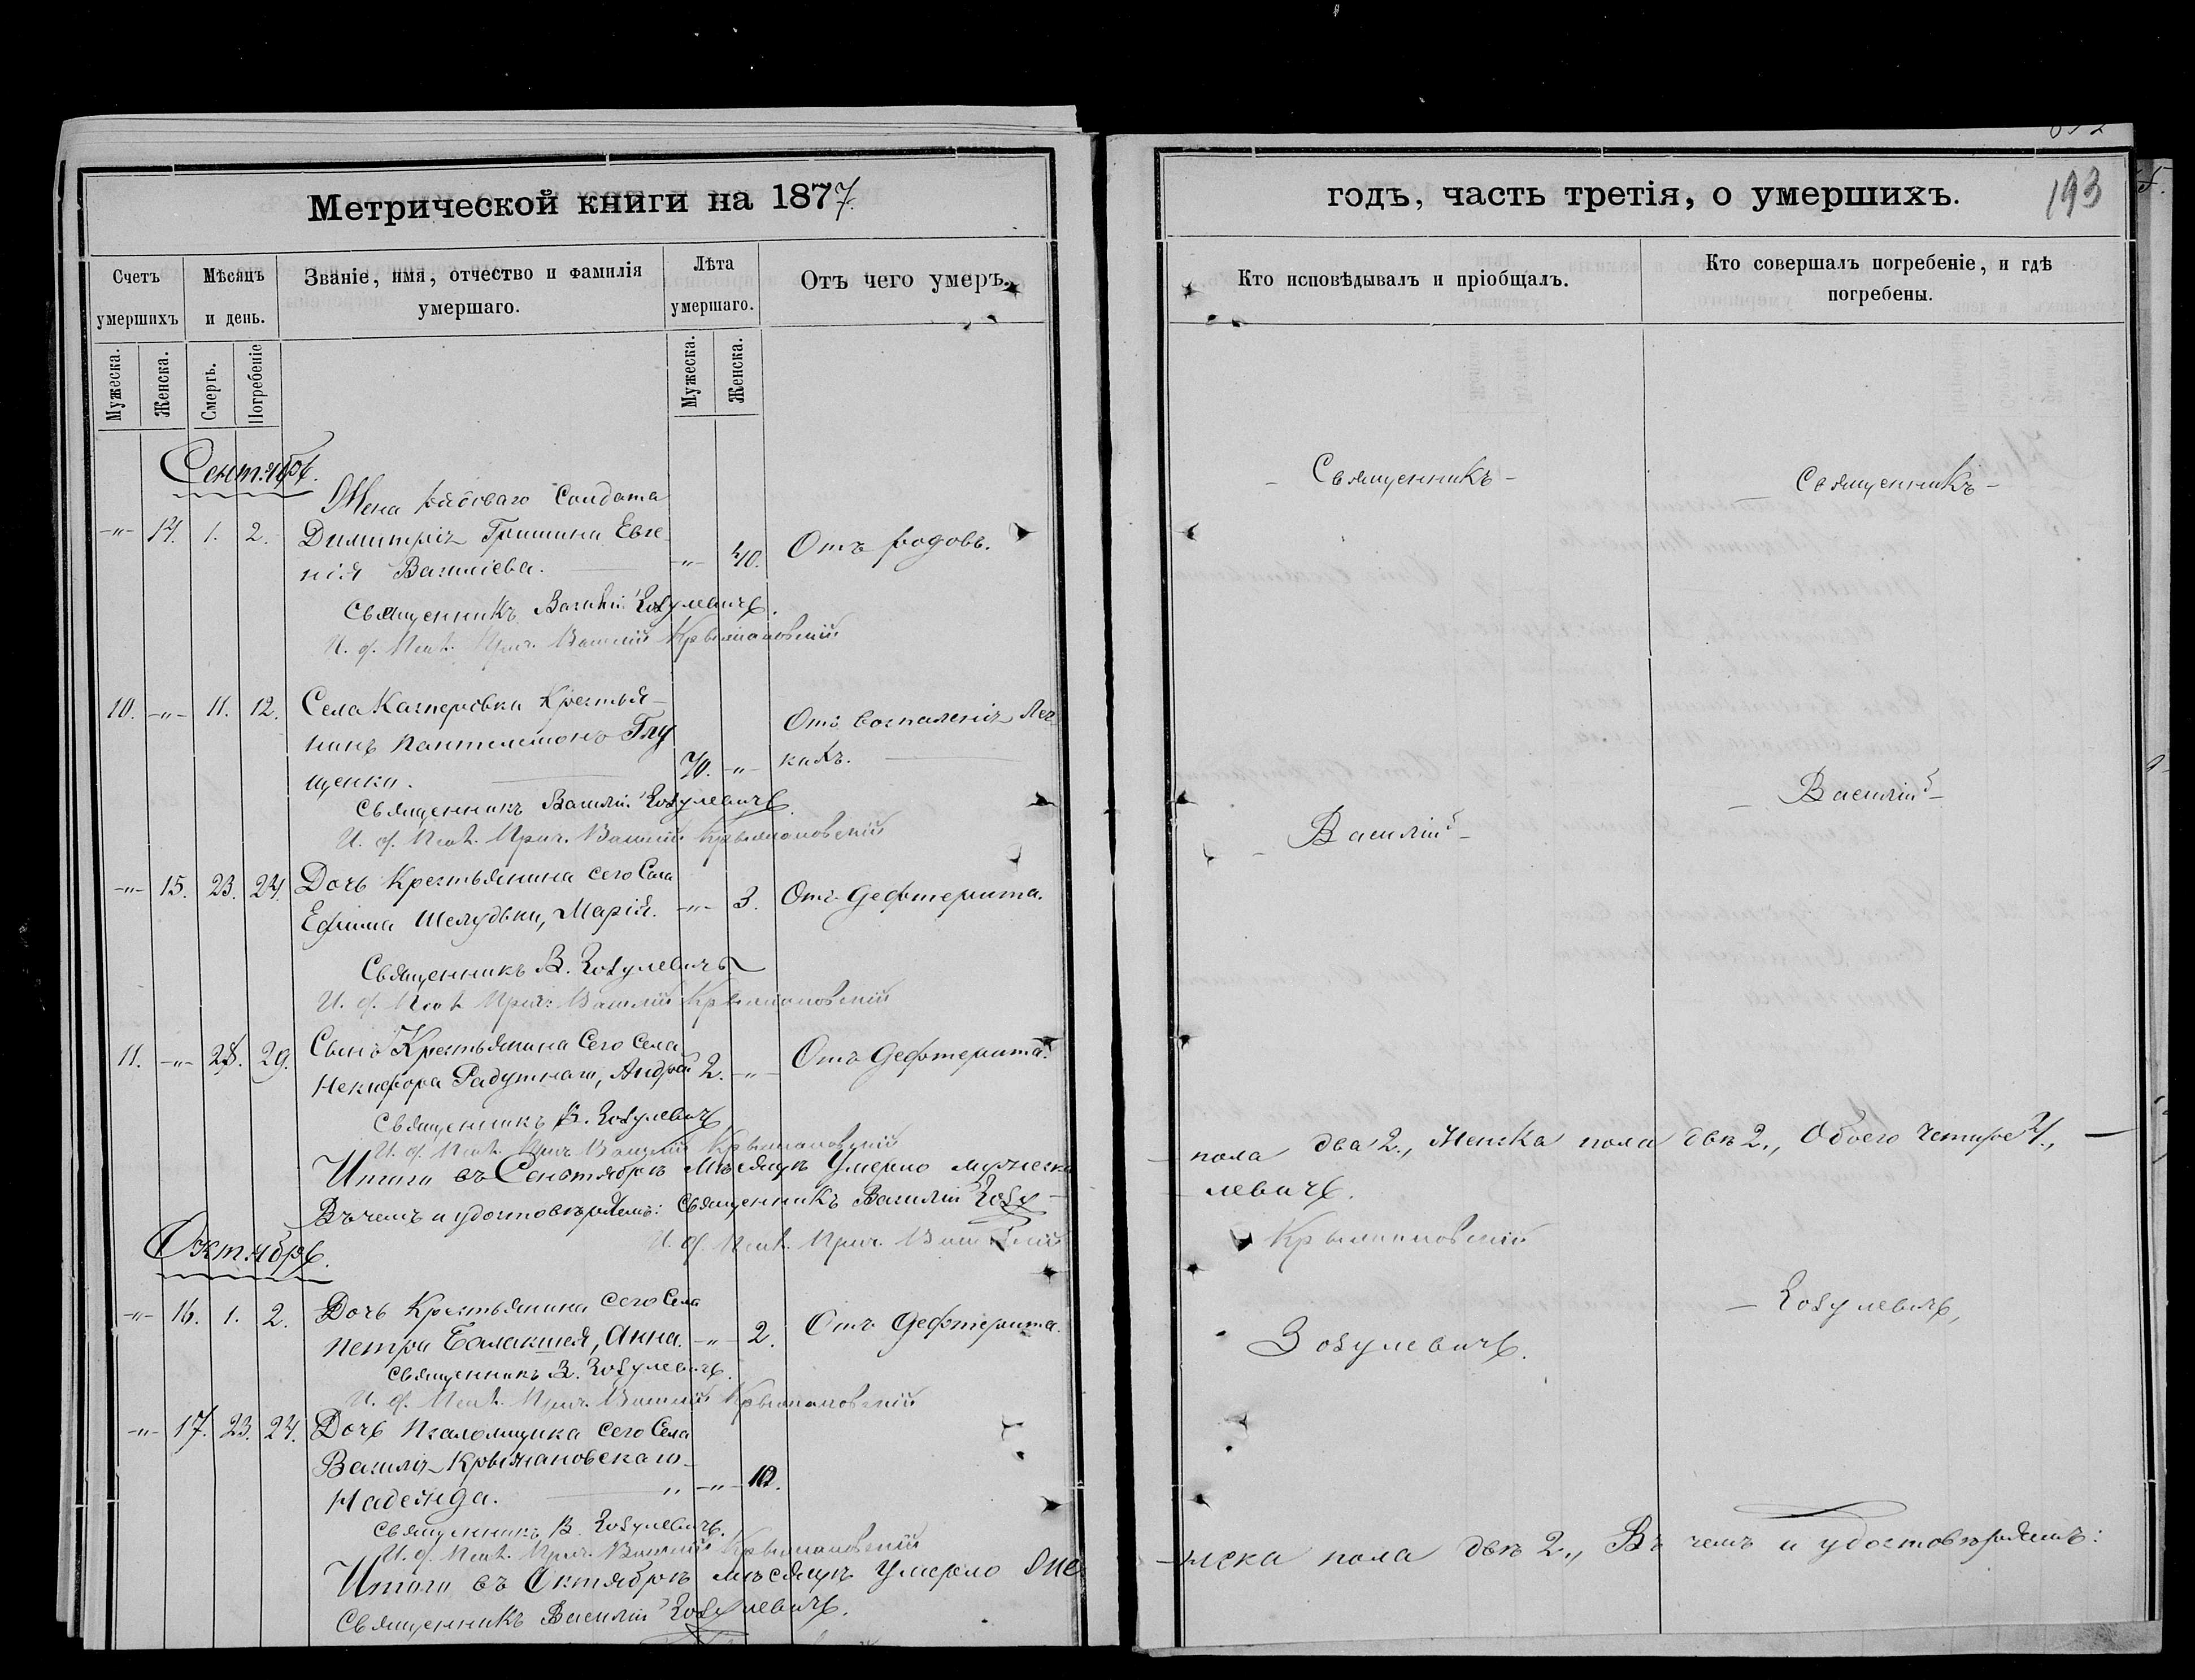 Метрической книги на 1877.
Счетъ умершихъ
Мѣсяцъ и день.
Званіе, имя, отчество и фамилія умершаго.
Лѣта умершаго.
Отъ чего умеръ.
Мужеска.
Женска.
Смерть.
Погребеніе
Мужеска.
Женска.
Сентябрь.
Жена рядоваго Солдата
-"- 14. 1. 2. Димитрія Гришина Евге
нія Василіева. -"- 40. Отъ родовъ.
Священникъ Василій Зозулевичъ.
И. д. Псал. Прич. Василій Крыжановскій
10. -"- 11. 12. Села Касперовки Крестья-
нинъ Пантелеимонъ Глу
щенки. 70. -"- Отъ воспаленія Лег
кихъ.
Священникъ Василій Зозулевичъ.
И. д. Псал. Прич. Василій Крыжановскій
-"- 15. 23. 24. Дочь Крестьянина сего Села
Ефима Шелудьки, Марія. -"- 3. Отъ Дефтерита.
Священникъ В. Зозулевичъ
И. д. Псал. Прич. Василій Крыжановскій
11. -"- 28. 29. Сынъ Крестьянина Сего Села
Никифора Радушнаго, Андрей 2. -"- Отъ Дефтерита.
Священникъ В. Зозулевичъ
И. д. Псал. Прич. Василій Крыжановскій
Итого въ Сентябрѣ мѣсяцѣ Умерло мужеска
Въ чемъ и удостовѣряемъ: Священникъ Василій Зозу-
И. д. Псал. Прич. Василій
Октябрь.
-"- 16. 1. 2. Дочь Крестьянина сего Села
Петра Балакшея, Анна. -"- 2. Отъ Дефтерита.
Священникъ В. Зозулевичъ.
И. д. Псал. Прич. Василій Крыжановскій
-"- 17. 23. 24. Дочь Псаломщика сего Села
Василія Крыжановскаго
Надежда. " -"- 10.
Священникъ В. Зозулевичъ.
И. д. Псал. Прич. Василій Крыжановскій
Итого въ Октябрѣ мѣсяцѣ Умерло Же
Священникъ Василій Зозулевичъ.
годъ, часть третія, о умершихъ.
193
Кто исповѣдывалъ и пріобщалъ.
Кто совершалъ погребеніе, и гдѣ погребены.
- Священникъ -
- Священникъ -
- Василій -
- Василій -
пола два 2., Женска пола двѣ 2., Обоего Четыре 4., -
левичъ.
Крыжановскій
- Зозулевичъ,
Зозулевичъ.
нска пола двѣ 2., Въ чемъ и удостовѣряемъ: